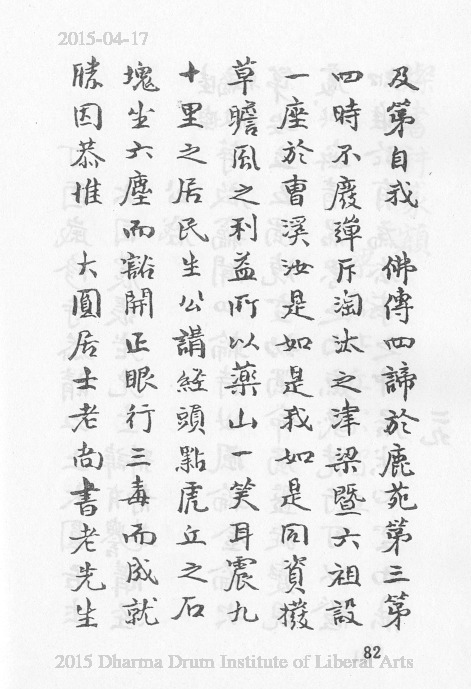 2015-04-17
及第自我　佛傳四諦於鹿苑第三第
四時不廢彈斥淘汰之津梁暨六祖設
一座於曹溪汝是如是我如是同資撥
草瞻風之利益所以藥山一笑耳震九
十里之居民生公講經頭點虎丘之石
塊坐六塵而豁開正眼行三毒而成就
勝因恭惟　大圓居士老尚書老先生
82
2015 Dharma Drum Institute of Liberal Arts